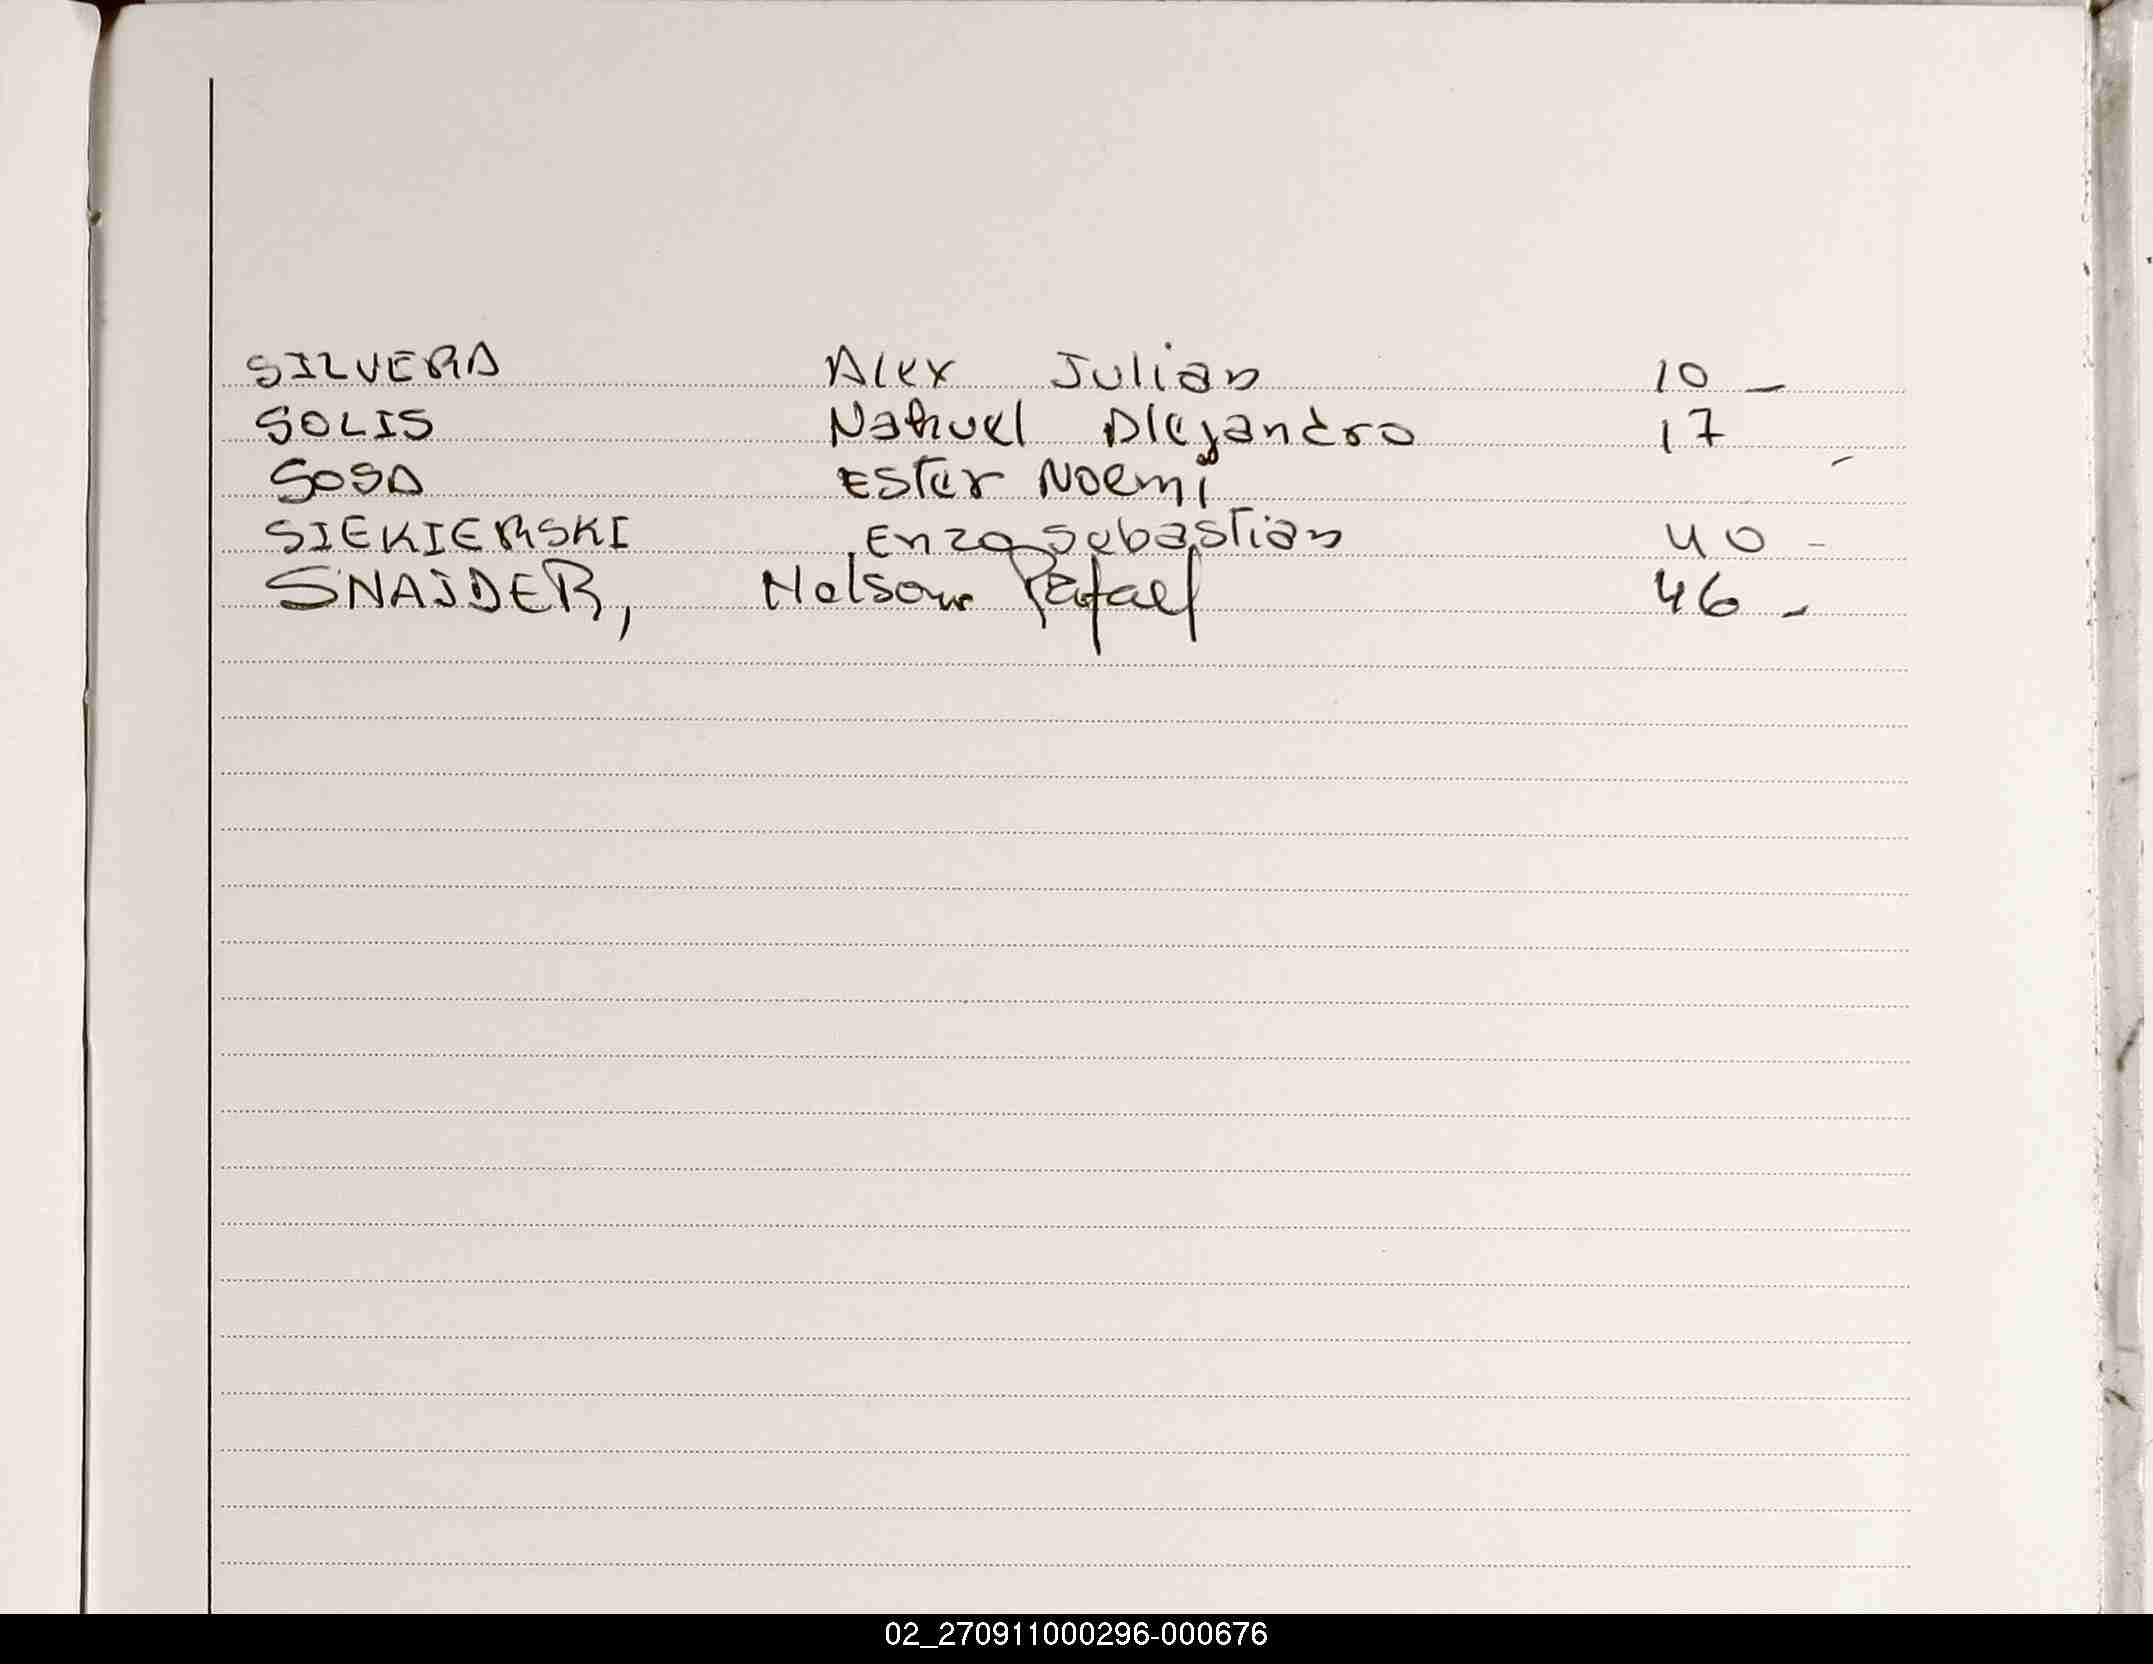 SILVERA Alex Julian 10 -
SOLIS Nahuel Alejandro 17 -
SOSA Ester Noemi
SIEKIERSKI Enzo Sebastian 40 -
SNAJDER, Nelson Rafael 46 -
02_270911000296-000676